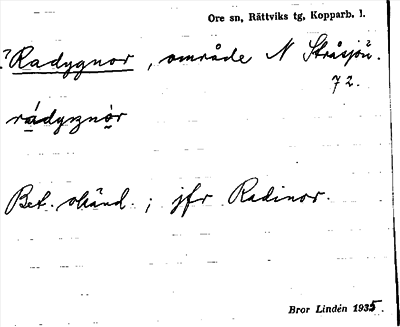 Ore sn, Rättviks tg, Kopparb. l.
? Radygnor, område N Stråsjön.
72.
Bet. okänd. ; jfr Radinor.
Bror Lindén 1935.